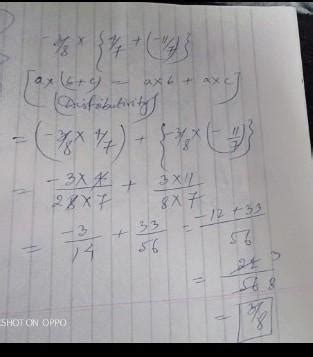 -3/8 × {4/7 + (-11/7)}
[a×(b+c) = a×b + a×c]
(Distributivity)
= (-3/8 × 4/7) + {-3/8 × (-11/7)}
= -3×4/28×7 + 3×11/8×7
= -3/14 + 33/56 = -12+33/56
= 21 3/56 8
= 3/8
SHOT ON OPPO